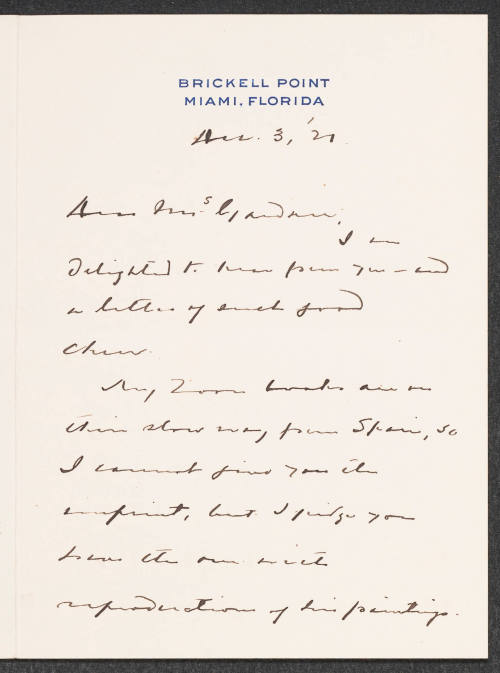 BRICKELL POINT
MIAMI, FLORIDA
Dec. 3, '21.
Dear Mrs Gardner,
I am
delighted to hear from you - and
a letter of such good
cheer.
My Zorn books are on
their slow way from Spain, so
I cannot give you the
imprint, but I judge you
have the one with
reproductions of his paintings.